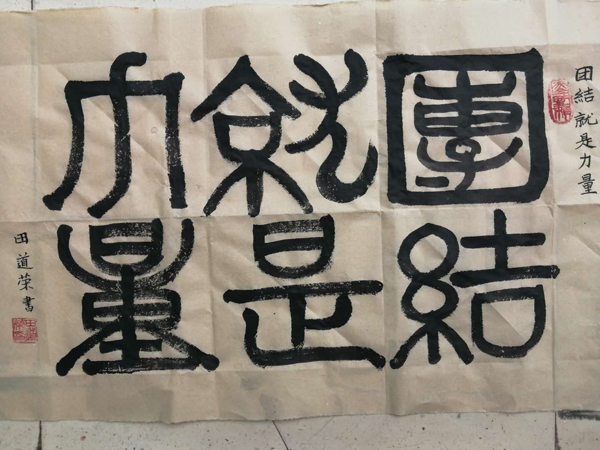 团結就是力量
團結
就是
力量
田道荣書